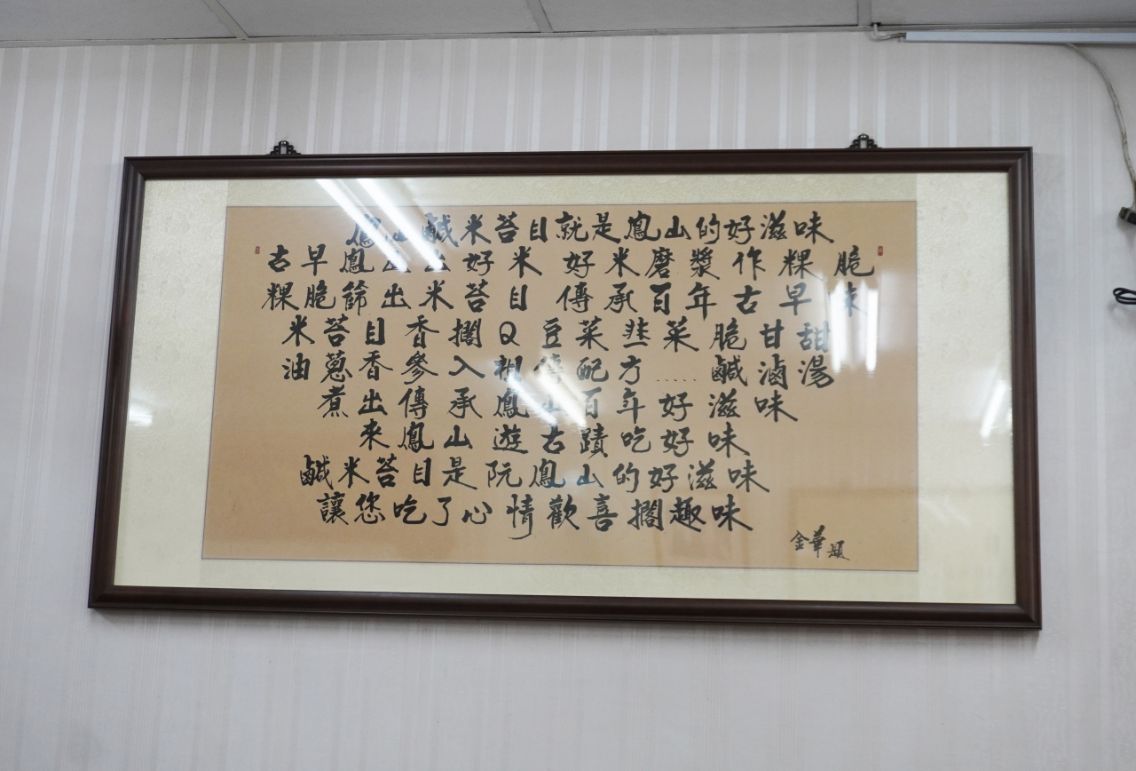 鳳山鹹米苔目就是鳳山的好滋味
古早鳳山出好米 好米磨漿作粿脆
粿脆篩出米苔目 傳承百年古早味
米苔目香擱Q豆菜韭菜脆甘甜
油蔥香參入祖傳配方.....鹹滷湯
煮出傳承鳳山百年好滋味
來鳳山遊古蹟吃好味
鹹米苔目是阮鳳山的好滋味
讓您吃了心情歡喜擱趣味
金華題